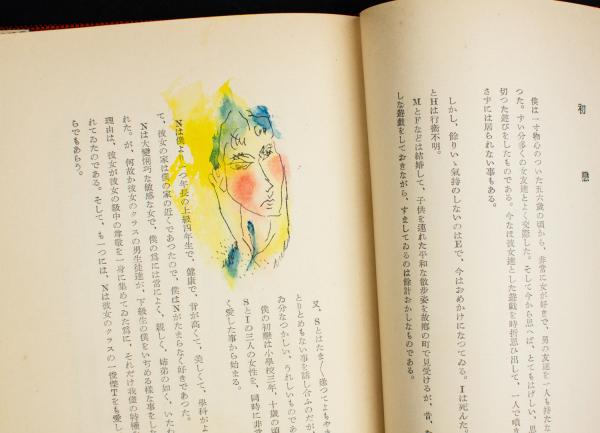 初戀
僕は一寸物心のついた五六歳の頃から、非常に女が好きで、男の友達を一人も持たな
つた。ずい分多くの女友達とよく交際した。そして今から思へば、とてもはげしい、思
切つた遊びをしたものである。今なほ彼女達とした遊戯を時折思ひ出して、一人で噴
さずには居られない事もある。
しかし、餘りいゝ氣持のしないのはEで、今はおめかけになつてゐる。Iは死んだ。
とHは行衛不明。
MとFなどは結婚して、子供を連れた平和な散歩姿を故郷の町で見受けるが、昔、
しな遊戯をしておきながら、すましてゐるのは餘計おかしなものである。
又、Sとはたま〱逢つてよもや
とりとめもない事を話し合ふのだが、
ゐ分なつかしい、うれしいものであ
僕の初戀は小學校三年、十歳の頃
SとIの三人の女性を、同時に非常
く愛した事から始まる。
Nは僕より一つ年長の上級四年生で、健康で、脊が高くて、美しくて、學科がよ
て、彼女の家は僕の家の近くであつたので、僕はNがたまらなく好きであつた。
Nは大變悧巧な敏感な女で、僕の爲には常によく、親しく、姉弟の如く、いたわ
れたが、何故か彼女のクラスの男生徒達が、下級生の僕をいぢめる樣な事をした
理由は、彼女が彼女の級中の尊敬を一身に集めてゐた爲に、それだけ我儘の特種な
れてゐたのである。そして、も一つには、Nは彼女のクラスの一俊傑Tをも愛し
らでもあらう。